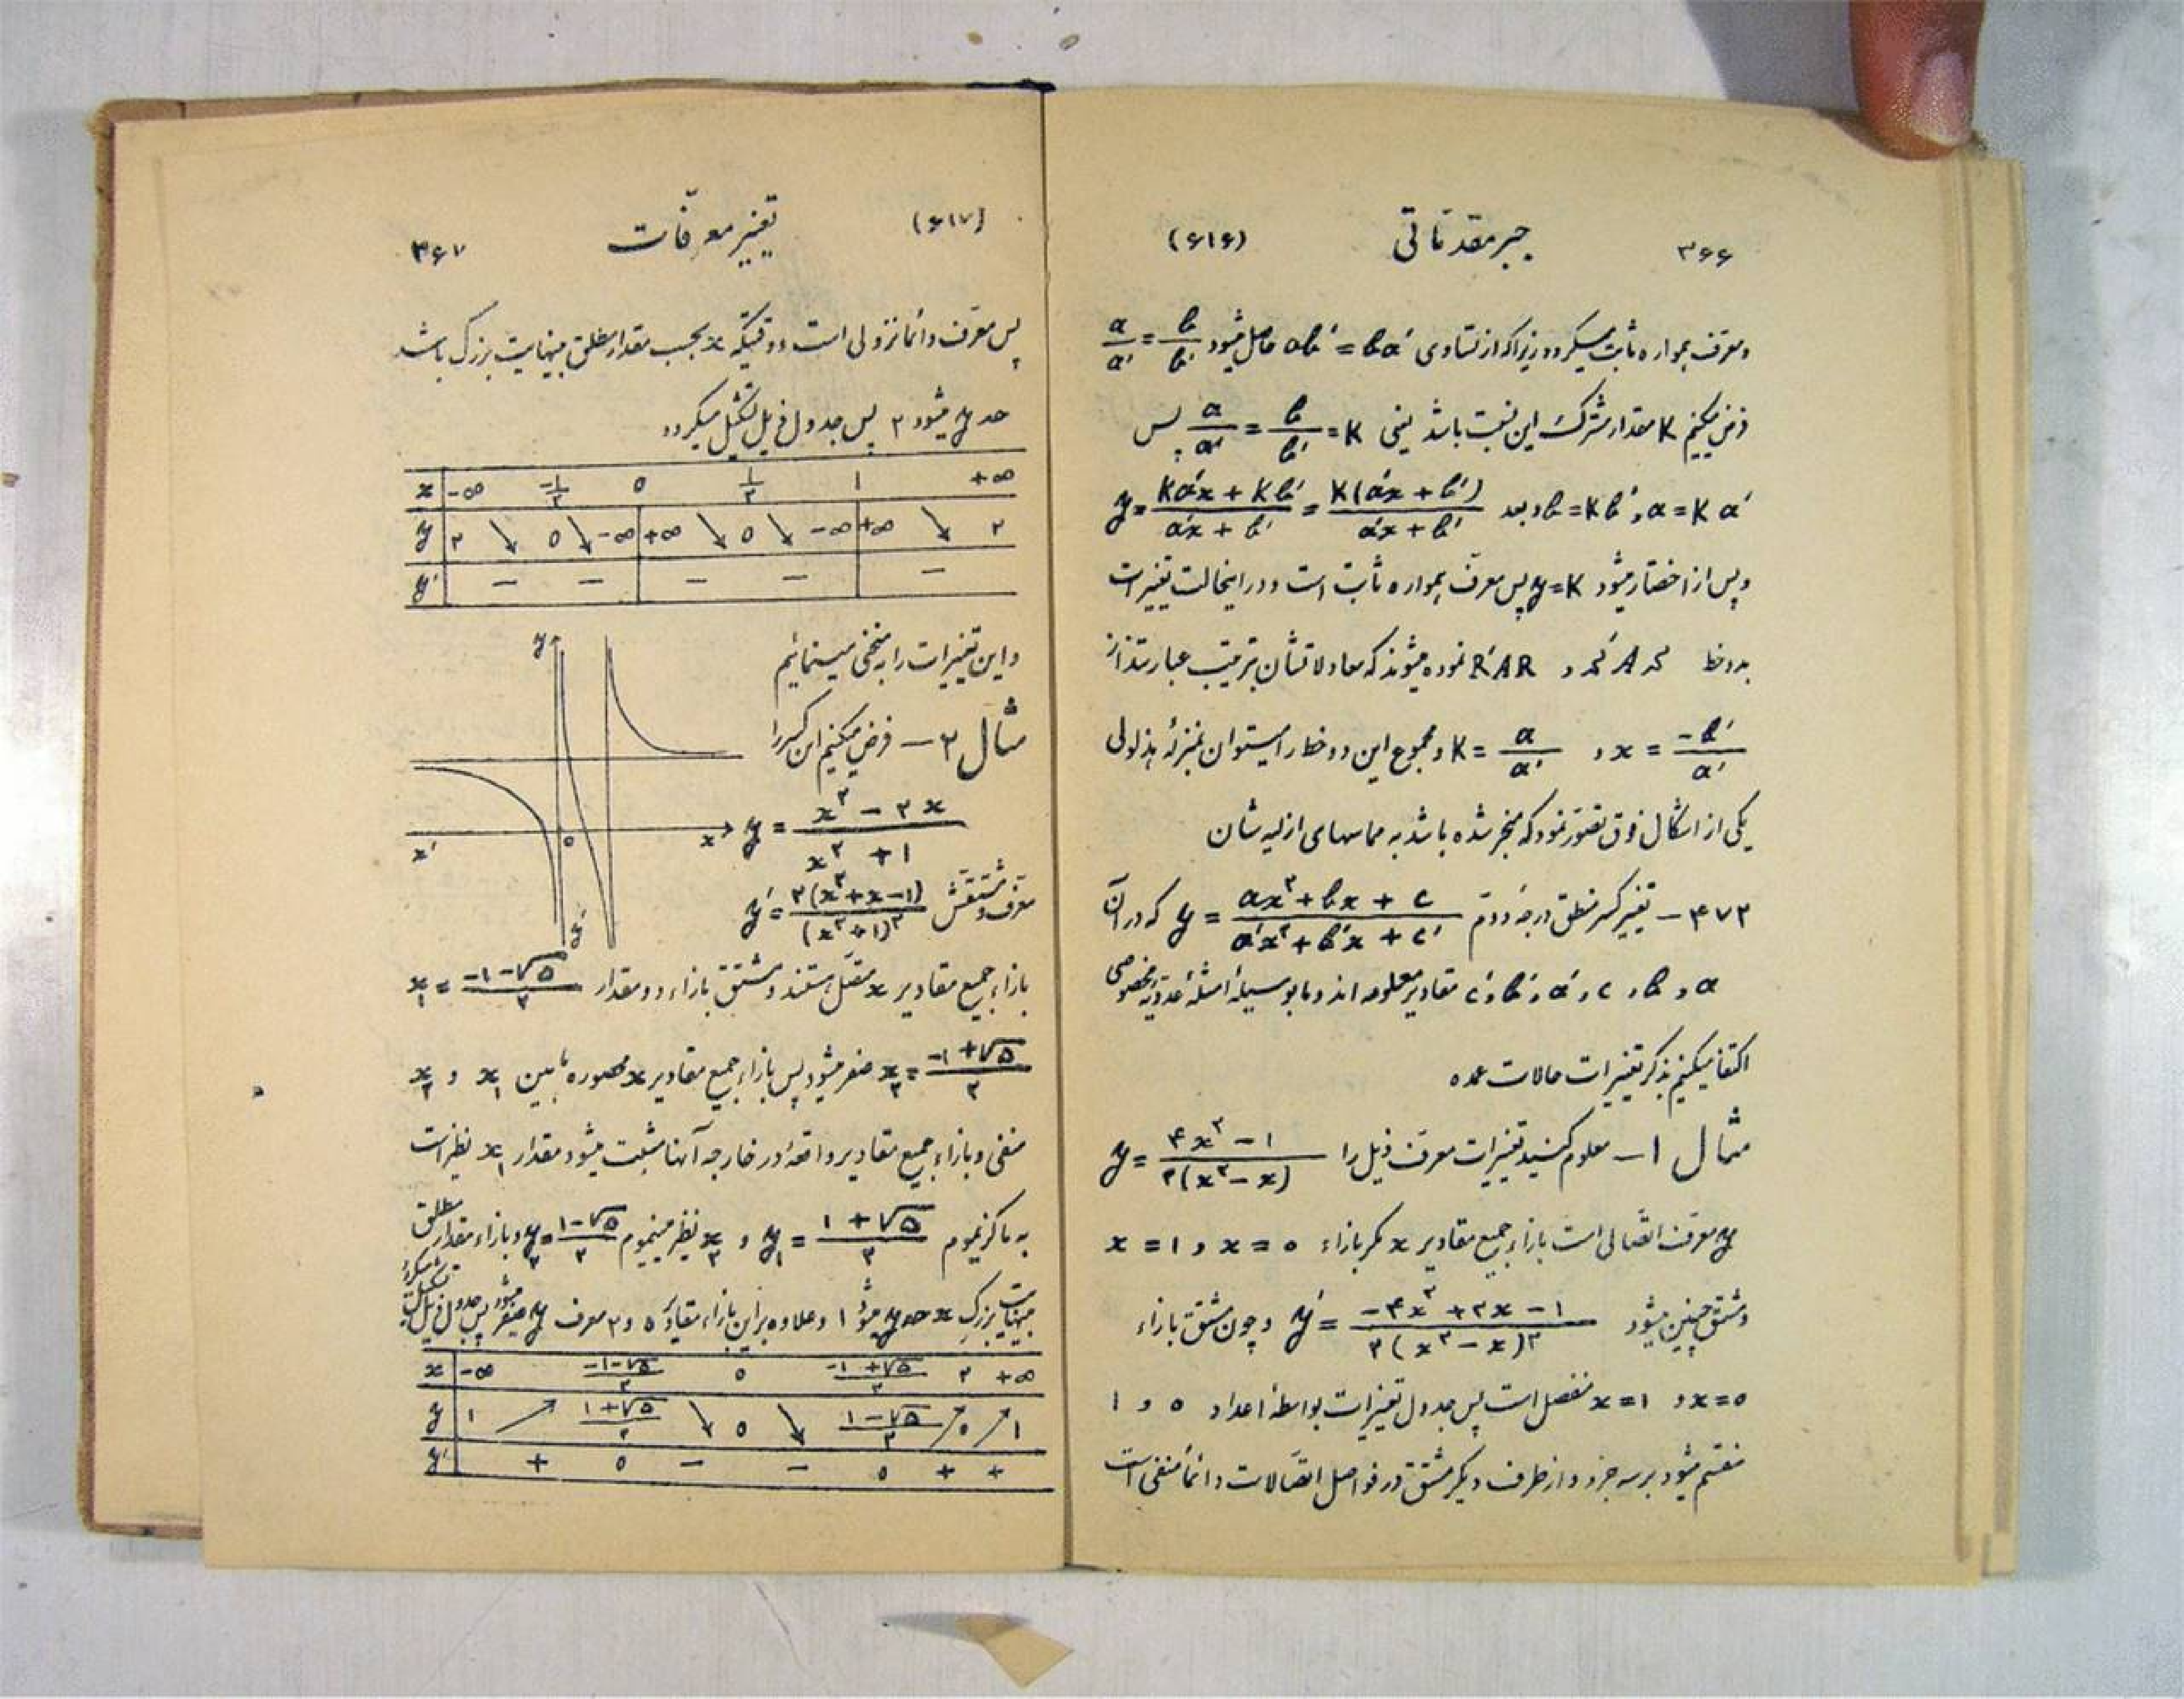 ۳۶۶ جبر مقدماتی (۶۱۶)
ومعرف همواره ثابت میگردد زیرا که از تساوی ab′ = ba′ حاصل میشود a/a′ = b/b′
فرض میکنیم K مقدار مشترک این نسبت باشد یعنی a/a′ = b/b′ = K پس
a = Ka′ و b = Kb′ و بعد y = (Ka′x + Kb′)/(a′x + b′) = K(a′x + b′)/(a′x + b′)
و پس از اختصار میشود y = K پس معرف همواره ثابت است و در اینحالت تغییرات
بدو خط و R′AR نموده میشوند که معادلاتشان بترتیب عبارتند از
x = −b′/a′ و K = a/a′ و مجموع این دو خط را میتوان بمنزلهٔ هذلولی
یکی از اشکال فوق تصور نمود که منجر شده باشد به مماسهای ازلیه شان
۴۷۲ – تغییر کسر منطق درجهٔ دوم y = (ax² + bx + c)/(a′x² + b′x + c′) که در آن
a و b و c و a′ و b′ و c′ مقادیر معلومه اند و ما بوسیلهٔ امثلهٔ عددیهٔ مخصوصی
اکتفا میکنیم بذکر تغییرات حالات عمده
مثال ۱ – معلوم کنید تغییرات معرف ذیل را y = (۴x² − ۱)/۲(x² − x)
y معرف اتصالی است بازاء جمیع مقادیر x مگر بازاء x = ۰ و x = ۱
ومشتق چنین میشود y′ = (−۴x² + ۲x − ۱)/۲(x² − x)² و چون مشتق بازاء
x = ۰ و x = ۱ منفصل است پس جدول تغییرات بواسطهٔ اعداد ۰ و ۱
منقسم میشود بر سه جزء و از طرف دیگر مشتق در فواصل اتصالات دائماً منفی است
(۶۱۷) تغییر معرفات ۳۶۷
پس معرف دائماً نزولی است و وقتیکه x بحسب مقدار مطلق بینهایت بزرگ باشد
حد y میشود ۲ پس جدول ذیل تشکیل میگردد
x −∞ −۱/۲ ۰ ۱/۲ ۱ +∞
y ۲ ↘ ۰ ↘ −∞ | +∞ ↘ ۰ ↘ −∞ | +∞ ↘ ۲
y′ − − − − −
و این تغییرات را به منحنی مینمائیم
y
x′ ۰ x
y′
مثال ۲ – فرض میکنیم این کسر را
y = (x² − ۲x)/(x² + ۱)
معرف و مشتقش y′ = ۲(x² + x − ۱)/(x² + ۱)²
بازاء جمیع مقادیر x متصل هستند و مشتق بازاء دو مقدار x₁ = (−۱ − √۵)/۲
x₂ = (−۱ + √۵)/۲ صفر میشود پس بازاء جمیع مقادیر x محصوره مابین x₁ و x₂
منفی و بازاء جمیع مقادیر واقعهٔ در خارجه آنها مثبت میشود مقدار x₁ نظیر است
به ماکزیموم y₁ = (۱ + √۵)/۲ و x₂ نظیر مینیموم y₂ = (۱ − √۵)/۲ و بازاء مقدار مطلق
بینهایت بزرگ x حد y میشود ۱ و علاوه بر این بازاء مقادیر ۰ و ۲ معرف y صفر میشود پس جدول ذیل تشکیل میگردد
x −∞ (−۱−√۵)/۲ ۰ (−۱+√۵)/۲ ۲ +∞
y ۱ ↗ (۱+√۵)/۲ ↘ ۰ ↘ (۱−√۵)/۲ ↗ ۰ ↗ ۱
y′ + ۰ − − ۰ + +